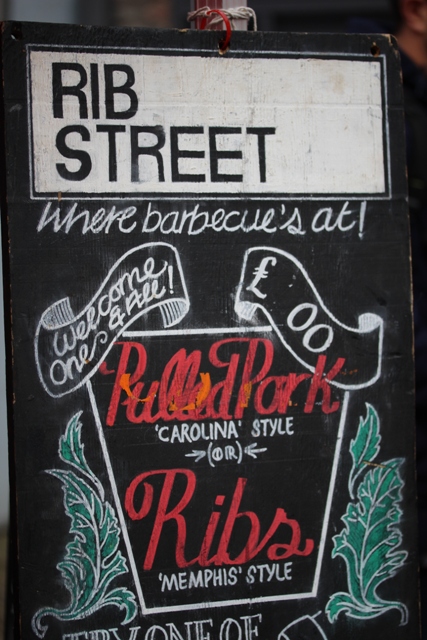 RIB
STREET
Where barbecue's at!
Welcome
One & All!
£ 00
Pulled Pork
'CAROLINA' STYLE
(OR)
Ribs
'MEMPHIS' STYLE
TRY ONE OF